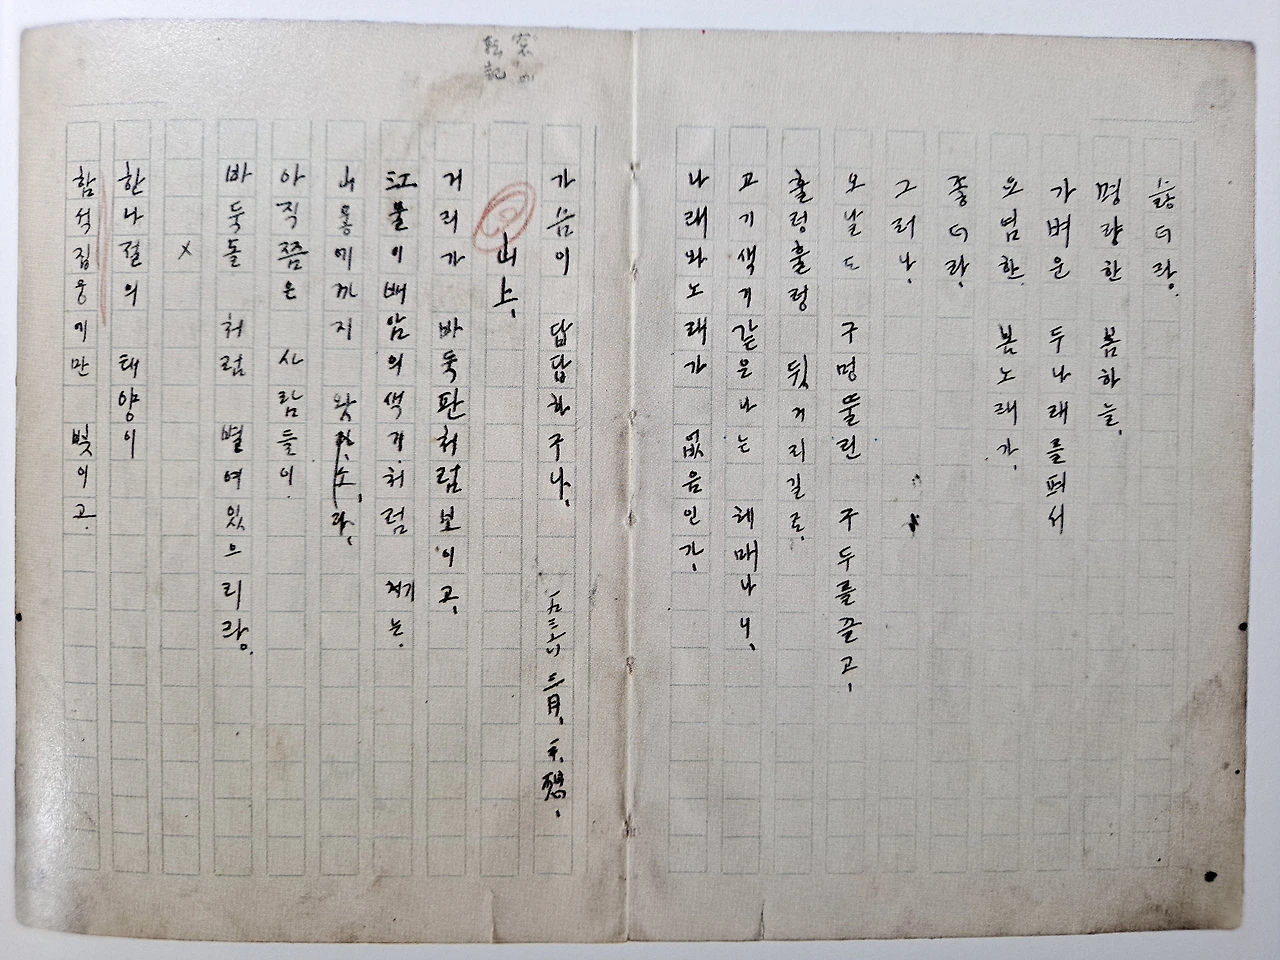 슳더라.
명랑한 봄하늘,
가벼운 두나래를펴서
요염한 봄노래가,
좋더라,
그러나,
오날도 구멍뚤린 구두를끌고,
훌렁훌렁 뒷거리길로,
고기색기같은나는 헤매나니,
나래와노래가 없음인가,
가슴이 답답하구나, 一九三六 三月, 平想,
山上,
거리가 바둑판처럼보이고,
江물이배암의색기처럼 기는.
山웋에까지 왔다,
아직쯤은 사람들이.
바둑돌처럼 별여있으리라.
×
한나절의 태양이
함석집웅에만 빛이고.